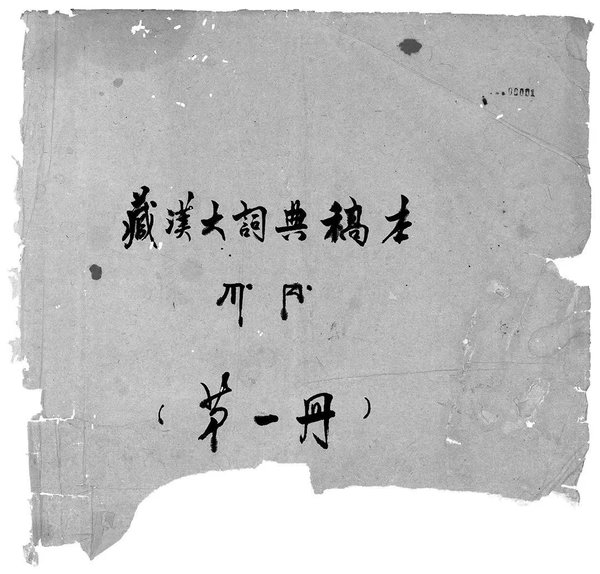 00001
藏漢大詞典稿本
ཀ་ ཁ་
(第一冊)